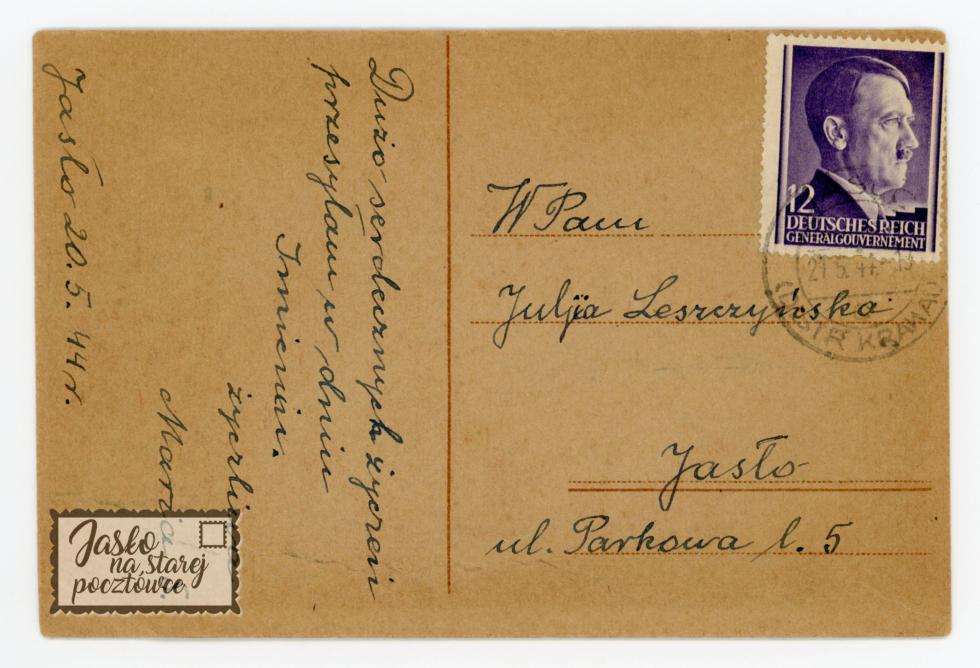 Dużo serdecznych życzeń
przesyłam w dniu
Imienin.
Jasło 20. 5. 44 r.
W Pani
Julja Leszczyńska
Jasło
ul. Parkowa l. 5
12
DEUTSCHES REICH
GENERALGOUVERNEMENT
Jasło
na starej
pocztówce